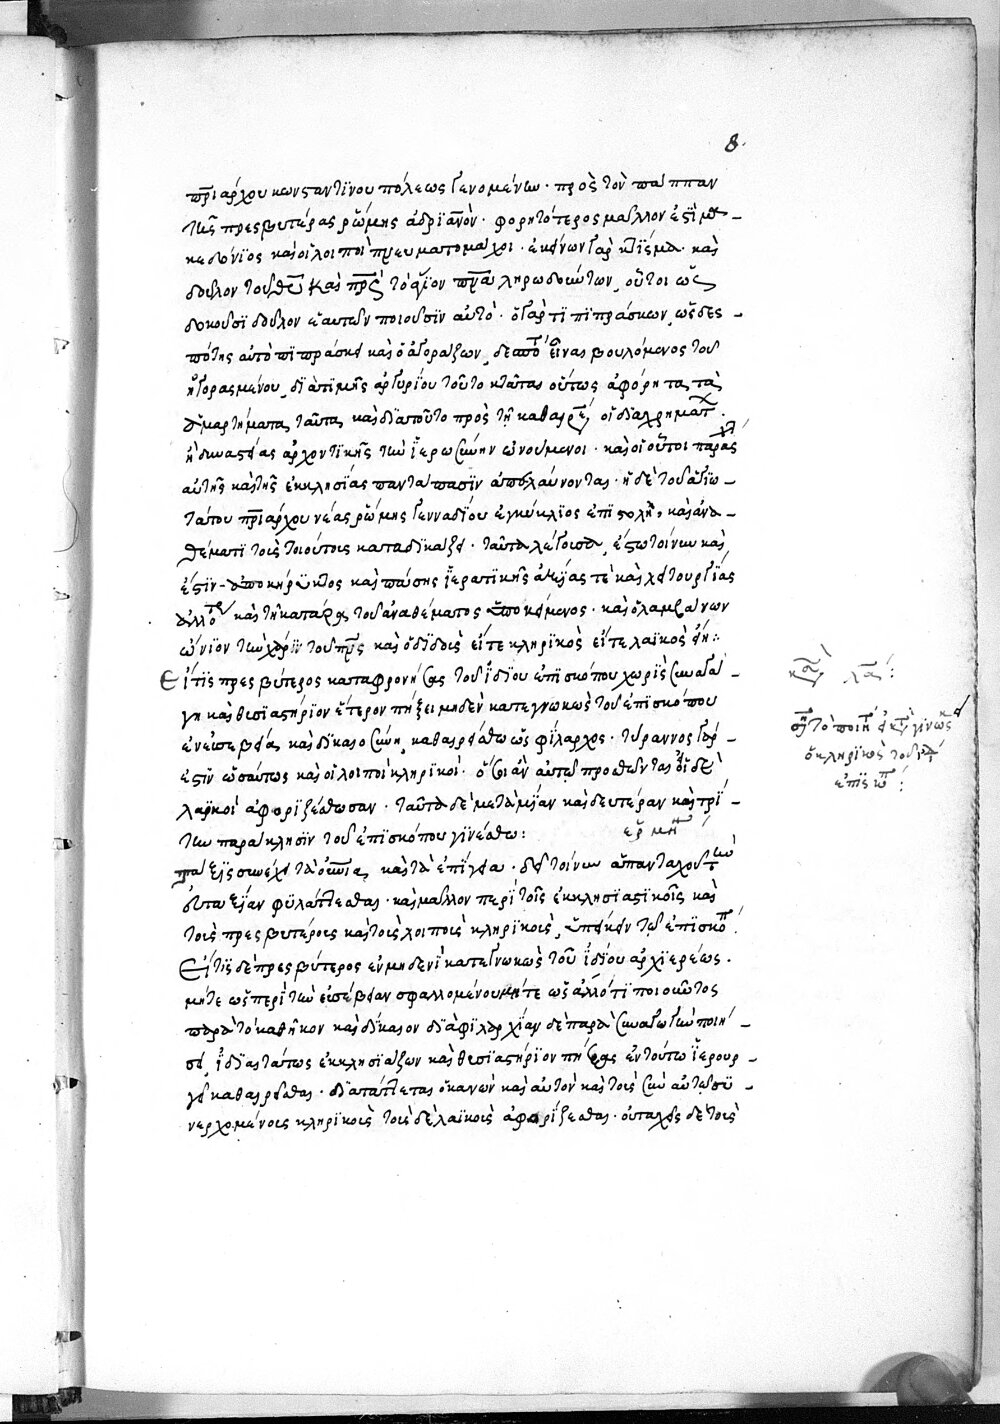 8.
πριάρχου κωνσταντϊνου πόλεως γενομένω. πρὸς τὸν πάππαν
τῆς πρεσβυτέρας ῥώμης ἀδρϊανὸν. φορητότερος μᾶλλον ἐστὶ μα–
κεδόνϊος καὶ οἱ λοιποὶ πνευματομάχοι. ἐκεῖνων γὰρ κτίσμα καὶ
δοῦλον τοῦ θῦ καὶ πρς τὸ ἅγϊον πνα ληρωδούντων, οὗτοι ὡς
δοκοῦσϊ δοῦλον ἑαυτῶν ποιοῦσϊν αὐτό. ὅ γάρ τϊ πϊπράσκων, ὡς δεσ–
πότης αὐτὸ πϊπράσκει καὶ ὁ ἀγοράζων, δεσπότ εἶναι βουλόμενος τοῦ
ἠγορασμένου, διὰ τϊμῆς ἀργυρίου τοῦτο κτᾶται οὕτως ἀφόρητα τὰ
ἁμαρτήματα ταῦτα, καὶ διατοῦτο πρὸς τῇ καθαιρέ οἱ διὰ χρημάτ
ἢ δυναστείας ἀρχοντϊκῆς τὴν ἱερωσύνην ὠνούμενοι. καὶ οἱ οὗτοι
αὐτῆς καὶ τῆς ἐκκλησίας πανταπασϊν ἀπελαύνονται. ἡ δὲ τοῦ ἁγϊω–
τάτου πριάρχου νέας ῥώμης γενναδίου ἐγκύκλϊος ἐπϊστολὴ, καὶ ἀνα–
θέματι τοὺς τοιούτους καταδϊκάζει. ταῦτα λέγουσα, ἔστω τοίνυν καὶ
ἔστϊν ἀποκήρϋκτος καὶ πάσης ἱερατϊκῆς ἀξίας τὲ καὶ λειτουργϊας
ἀλλότ καὶ τῇ κατάρα τοῦ ἀναθέματος ὑποκείμενος. καὶ ὁ λαμβάνων
ὤνϊον τὴν χάρϊν τοῦ πνς καὶ ὁ δϊδοὺς εἴτε κληρϊκὸς εἴτε λαϊκὸς εἴη:
Εἴ τϊς πρεσβύτερος καταφρονήσας τοῦ ἰδίου ἐπϊσκόπου χωρὶς συναγά–
γη καὶ θυσϊαστήρϊον ἕτερον πήξει μηδὲν κατεγνωκὼς τοῦ ἐπϊσκόπου
ἐν εὐσεβεία, καὶ δϊκαιοσύνη, καθαιρείσθω ὡς φίλαρχος. τύραννος γάρ–
ἐστϊν ὡσαύτως καὶ οἱ λοιποὶ κληρϊκοὶ. ὅσοι ἂν αὐτῷ προσθῶνται οἱ δὲ
λαϊκοὶ ἀφορϊζέσθωσαν. ταῦτα δὲ μετὰ μίαν καὶ δευτέραν καὶ τρϊ–
την παράκλησϊν τοῦ ἐπϊσκόπου γϊνέσθω: ἑρμη
τάξις συνέχει τὰ οὐνια, καὶ τὰ ἐπϊγεια. δεῖ τοίνυν ἁπανταχοῦ τὴν
εὐταξίαν φϋλάττεσθαι. καὶ μᾶλλον περὶ τοῖς ἐκκλησϊαστϊκοῖς καὶ
τοὺς πρεσβυτέρους καὶ τοὺς λοιποὺς κληρϊκοὺς, ὑπείκειν τῷ ἐπϊσκόπ
Εἴ τϊς δὲ πρεσβύτερος ἐν μηδενὶ κατεγνωκὼς τοῦ ἰδίου ἀρχϊερέως.
μήτε ὡς περὶ τὴν εὐσέβειαν σφαλλομένου μήτε ὡς ἄλλο τϊ ποιοῦντος
παρὰ τὸ καθῆκον καὶ δίκαιον διὰ φϊλαρχΐαν δὲ παρασυναγωγὴν ποιή–
σει, ἰδϊαστάτως ἐκκλησϊάζων καὶ θυσϊαστήρϊον πήξας ἐν τούτω ἱερουρ–
γεῖ καθαιρεῖσθαι. διατάττεται ὁ κανὼν καὶ αὐτὸν καὶ τοὺς σὺν αὐτῷ συ–
νερχομένους κληρϊκοὺς τοὺς δὲ λαϊκοὺς ἀφορϊζεσθαι. οὐ ταχὺς δὲ τοὺς
κα λα:
ὁ κληρϊκὸς τοῦ